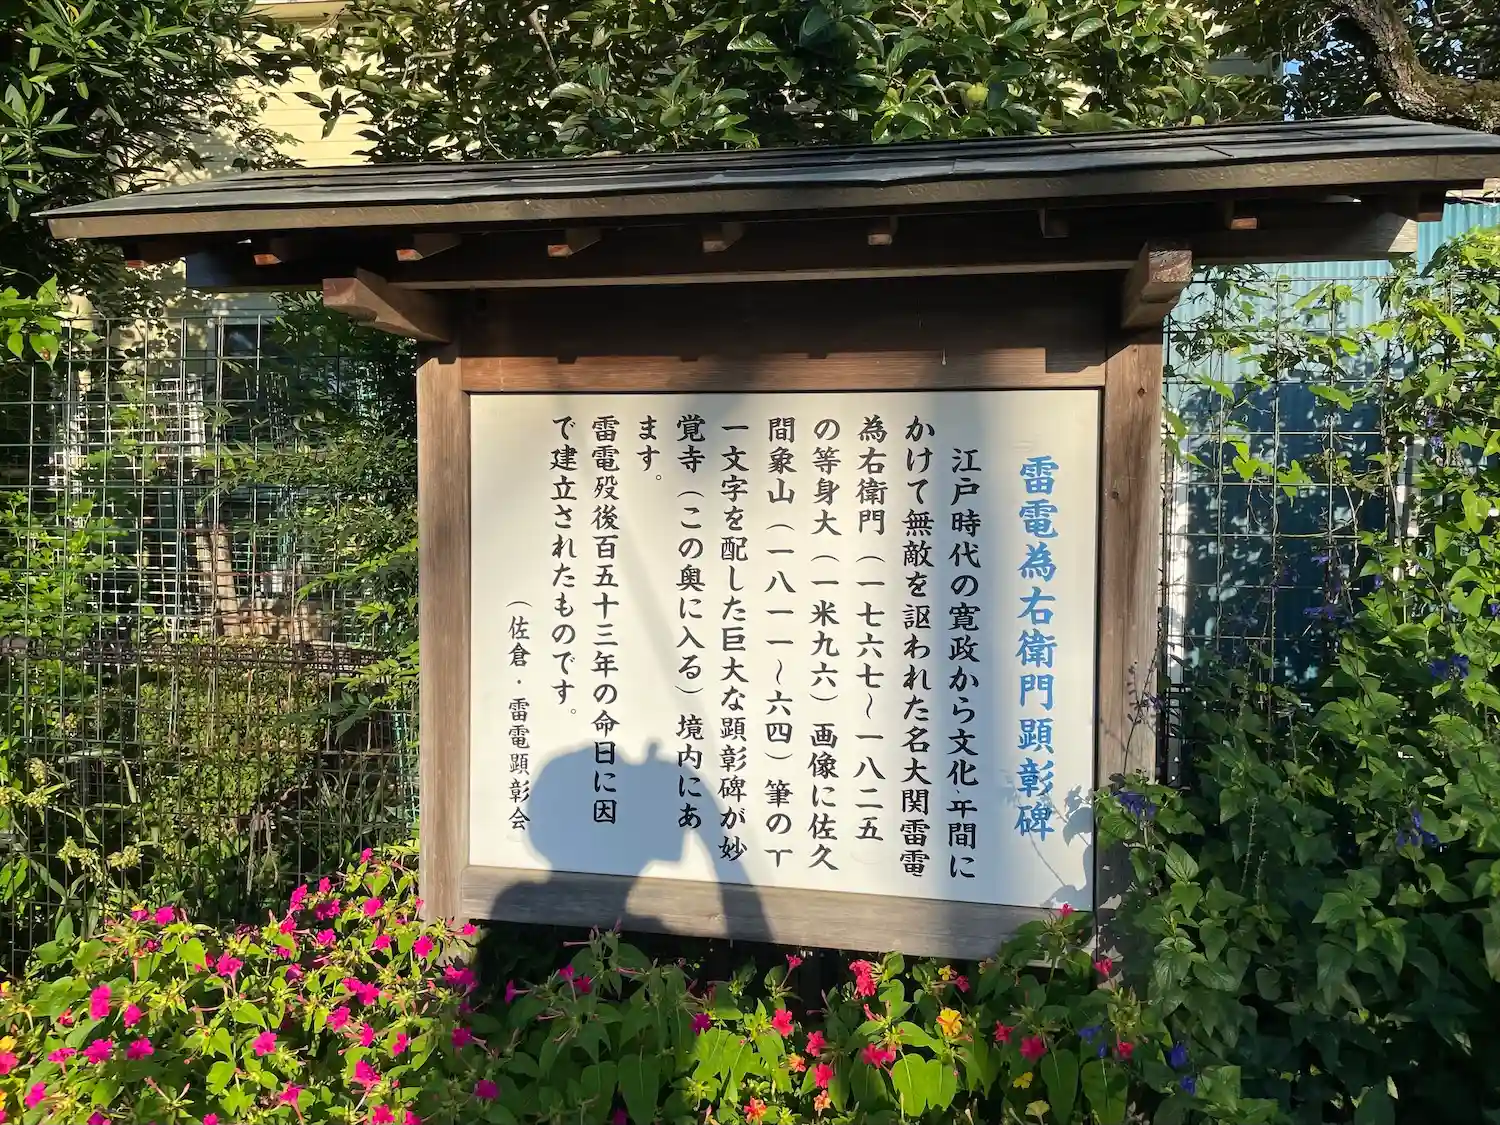 雷電為右衛門顕彰碑
江戸時代の寛政から文化年間に
かけて無敵を謳われた名大関雷電
為右衛門（一七六七～一八二五）
の等身大（一米九六）画像に佐久
間象山（一八一一～六四）筆の
一文字を配した巨大な顕彰碑が妙
覚寺（この奥に入る）境内にあ
ます。
雷電歿後百五十三年の命日に因
で建立されたものです。
（佐倉・雷電顕彰会）